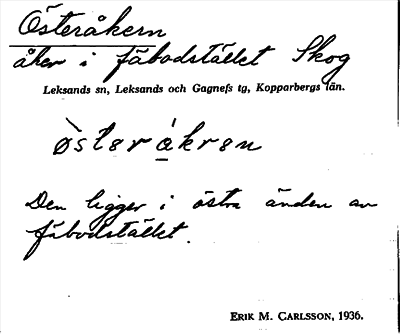 Österåkern
åker i fäbodstället Skog
Leksands sn, Leksands och Gagnefs tg, Kopparbergs län.
ø̀stərákrən
Den ligger i östra änden av
fäbodstället.
ERIK M. CARLSSON, 1936.